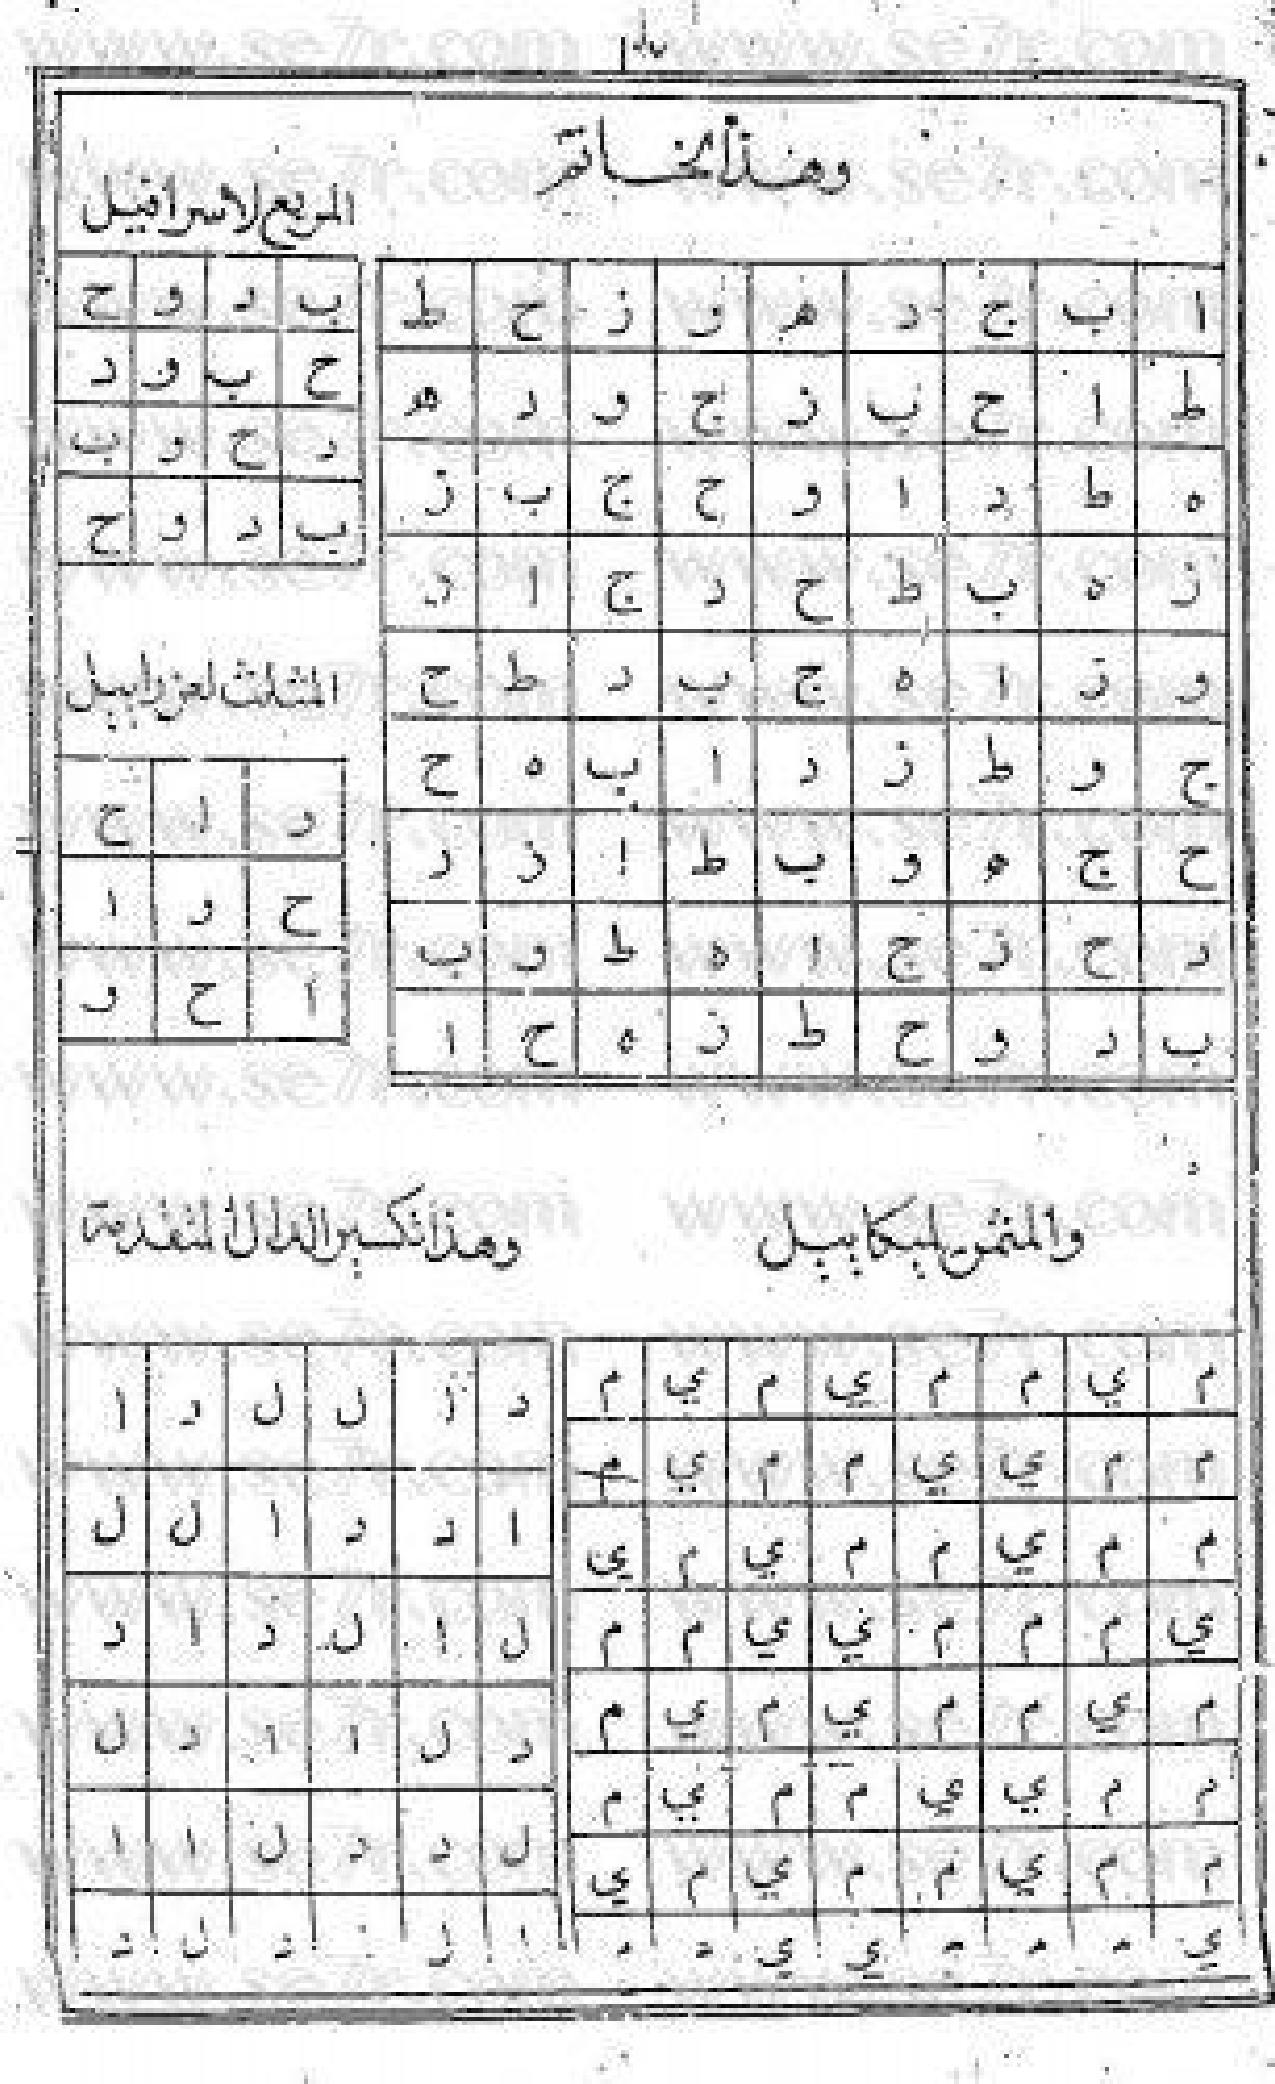 وهذا الخاتم
ا ب ج د ه و ز ح ط
ط ا ح ب ز ج و د ه
ه ط د ا و ح ج ب ز
ز ه ب ط ح د ج ا د
و ز ا ه ج ب د ط ح
ج و ط ز د ا ب ه ح
ح ج ه و ب ط ا ز د
د ح ز ج ا ه ط و ب
ب د و ح ط ز ه ح ا
المربع لاسرافيل
ب د و ح
ح ب و د
د ح و ب
ب د و ح
المثلث لعزراييل
د ا ح
ح د ا
ا ح د
والمثمن لميكاييل
م ي م م ي م ي م
م م ي ي م م ي م
م م ي م م ي م ي
ي م م م ي ي م م
م ي م م ي م ي م
م م ي ي م م ي م
م م ي م م ي م ي
ي م م م ي ي م م
وهذا تكسير الدال المتقدمة
د ا ل ل د ا
ا د د ا ل ل
ل ا ل د ا د
د ل ا ا د ل
ل د د ل ا ا
ا ل ا د ل د
www.se7r.com